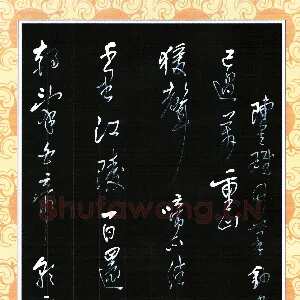 朝辭白帝彩
千里江陵一日還
猿聲啼不住
已過萬重山
shufawang.cn